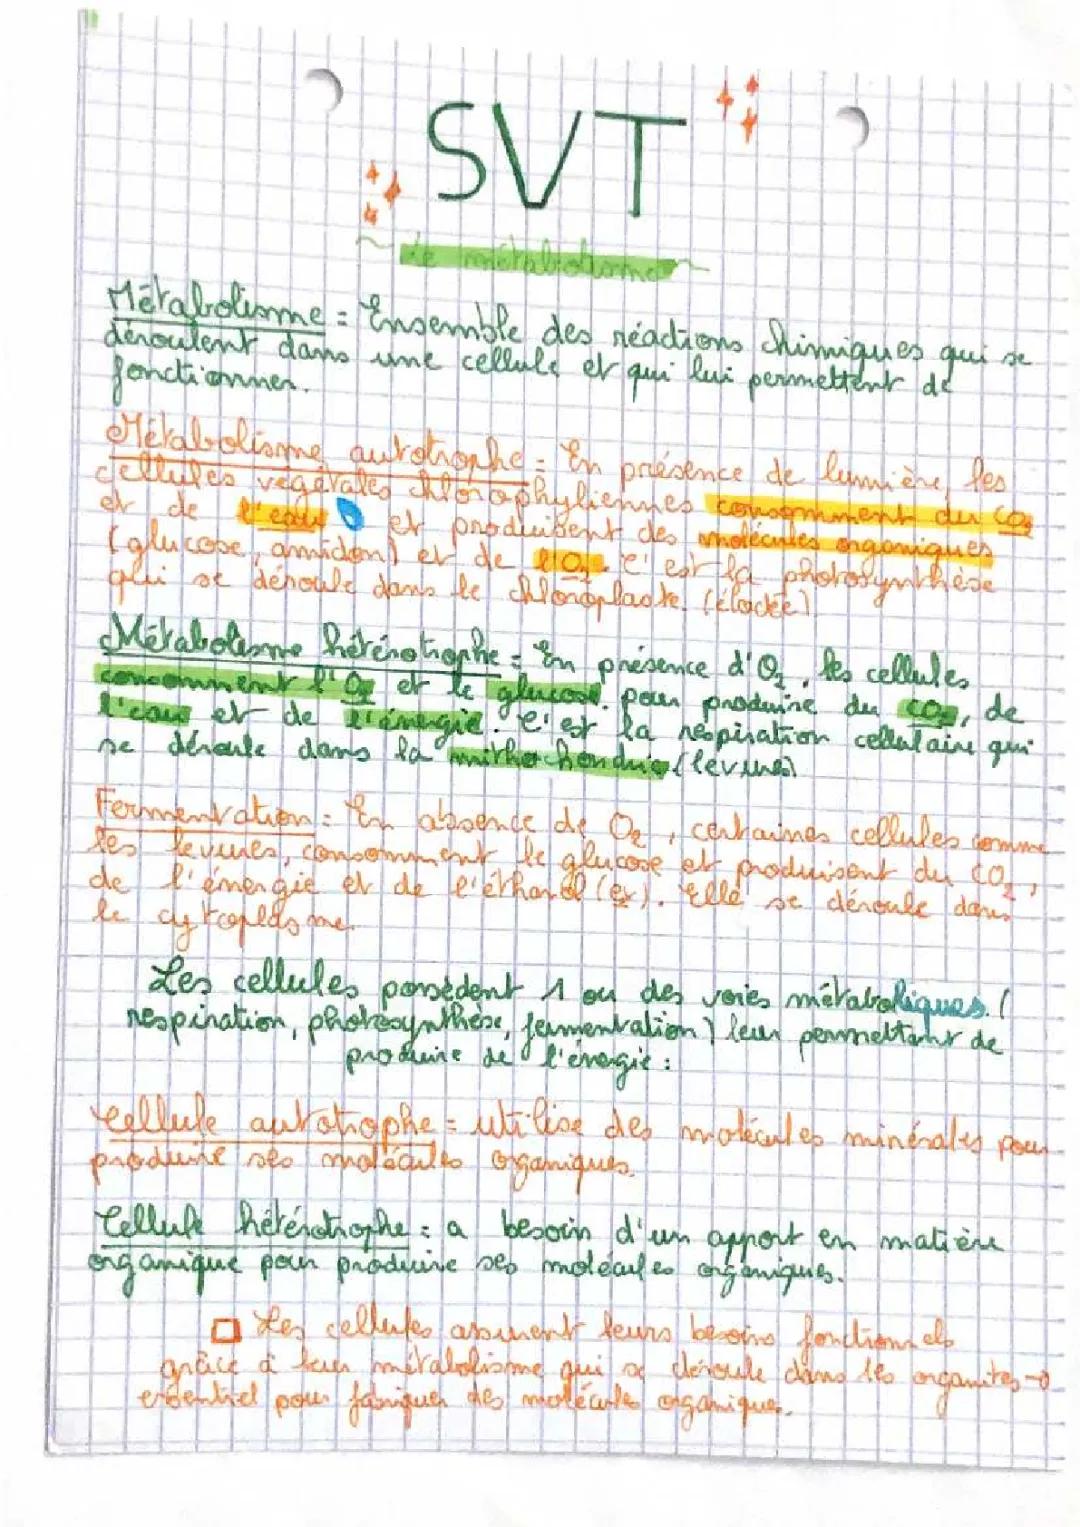 SVT
le métabolisme
Métabolisme = Ensemble des réactions chimiques qui se
déroulent dans une cellule et qui lui permettent de
fonctionner.
Métabolisme autotrophe = En présence de lumière, les
cellules végétales chlorophyliennes consomment du CO2
et de l'eau et produisent des molécules organiques
(glucose, amidon) et de l'O2. C'est la photosynthèse
qui se déroule dans le chloroplaste.
Métabolisme hétérotrophe = En présence d'O2, les cellules
consomment l'O2 et le glucose pour produire du CO2, de
l'eau et de l'énergie. C'est la respiration cellulaire qui
se déroule dans la mithochondrie (levures)
Fermentation = En absence de O2, certaines cellules comme
les levures, consomment le glucose et produisent du CO2,
de l'énergie et de l'éthanol (ex). Elle se déroule dans
le cytoplasme.
Les cellules possèdent 1 ou des voies métaboliques (
respiration, photosynthèse, fermentation) leur permettant de
produire de l'énergie :
Cellule autotrophe = utilise des molécules minérales pour
produire ses molécules organiques.
Cellule hétérotrophe = a besoin d'un apport en matière
organique pour produire ses molécules organiques.
Les cellules assurent leurs besoins fonctionnels
grâce à leur métabolisme qui se déroule dans les organites →
essentiel pour fabriquer des molécules organiques.